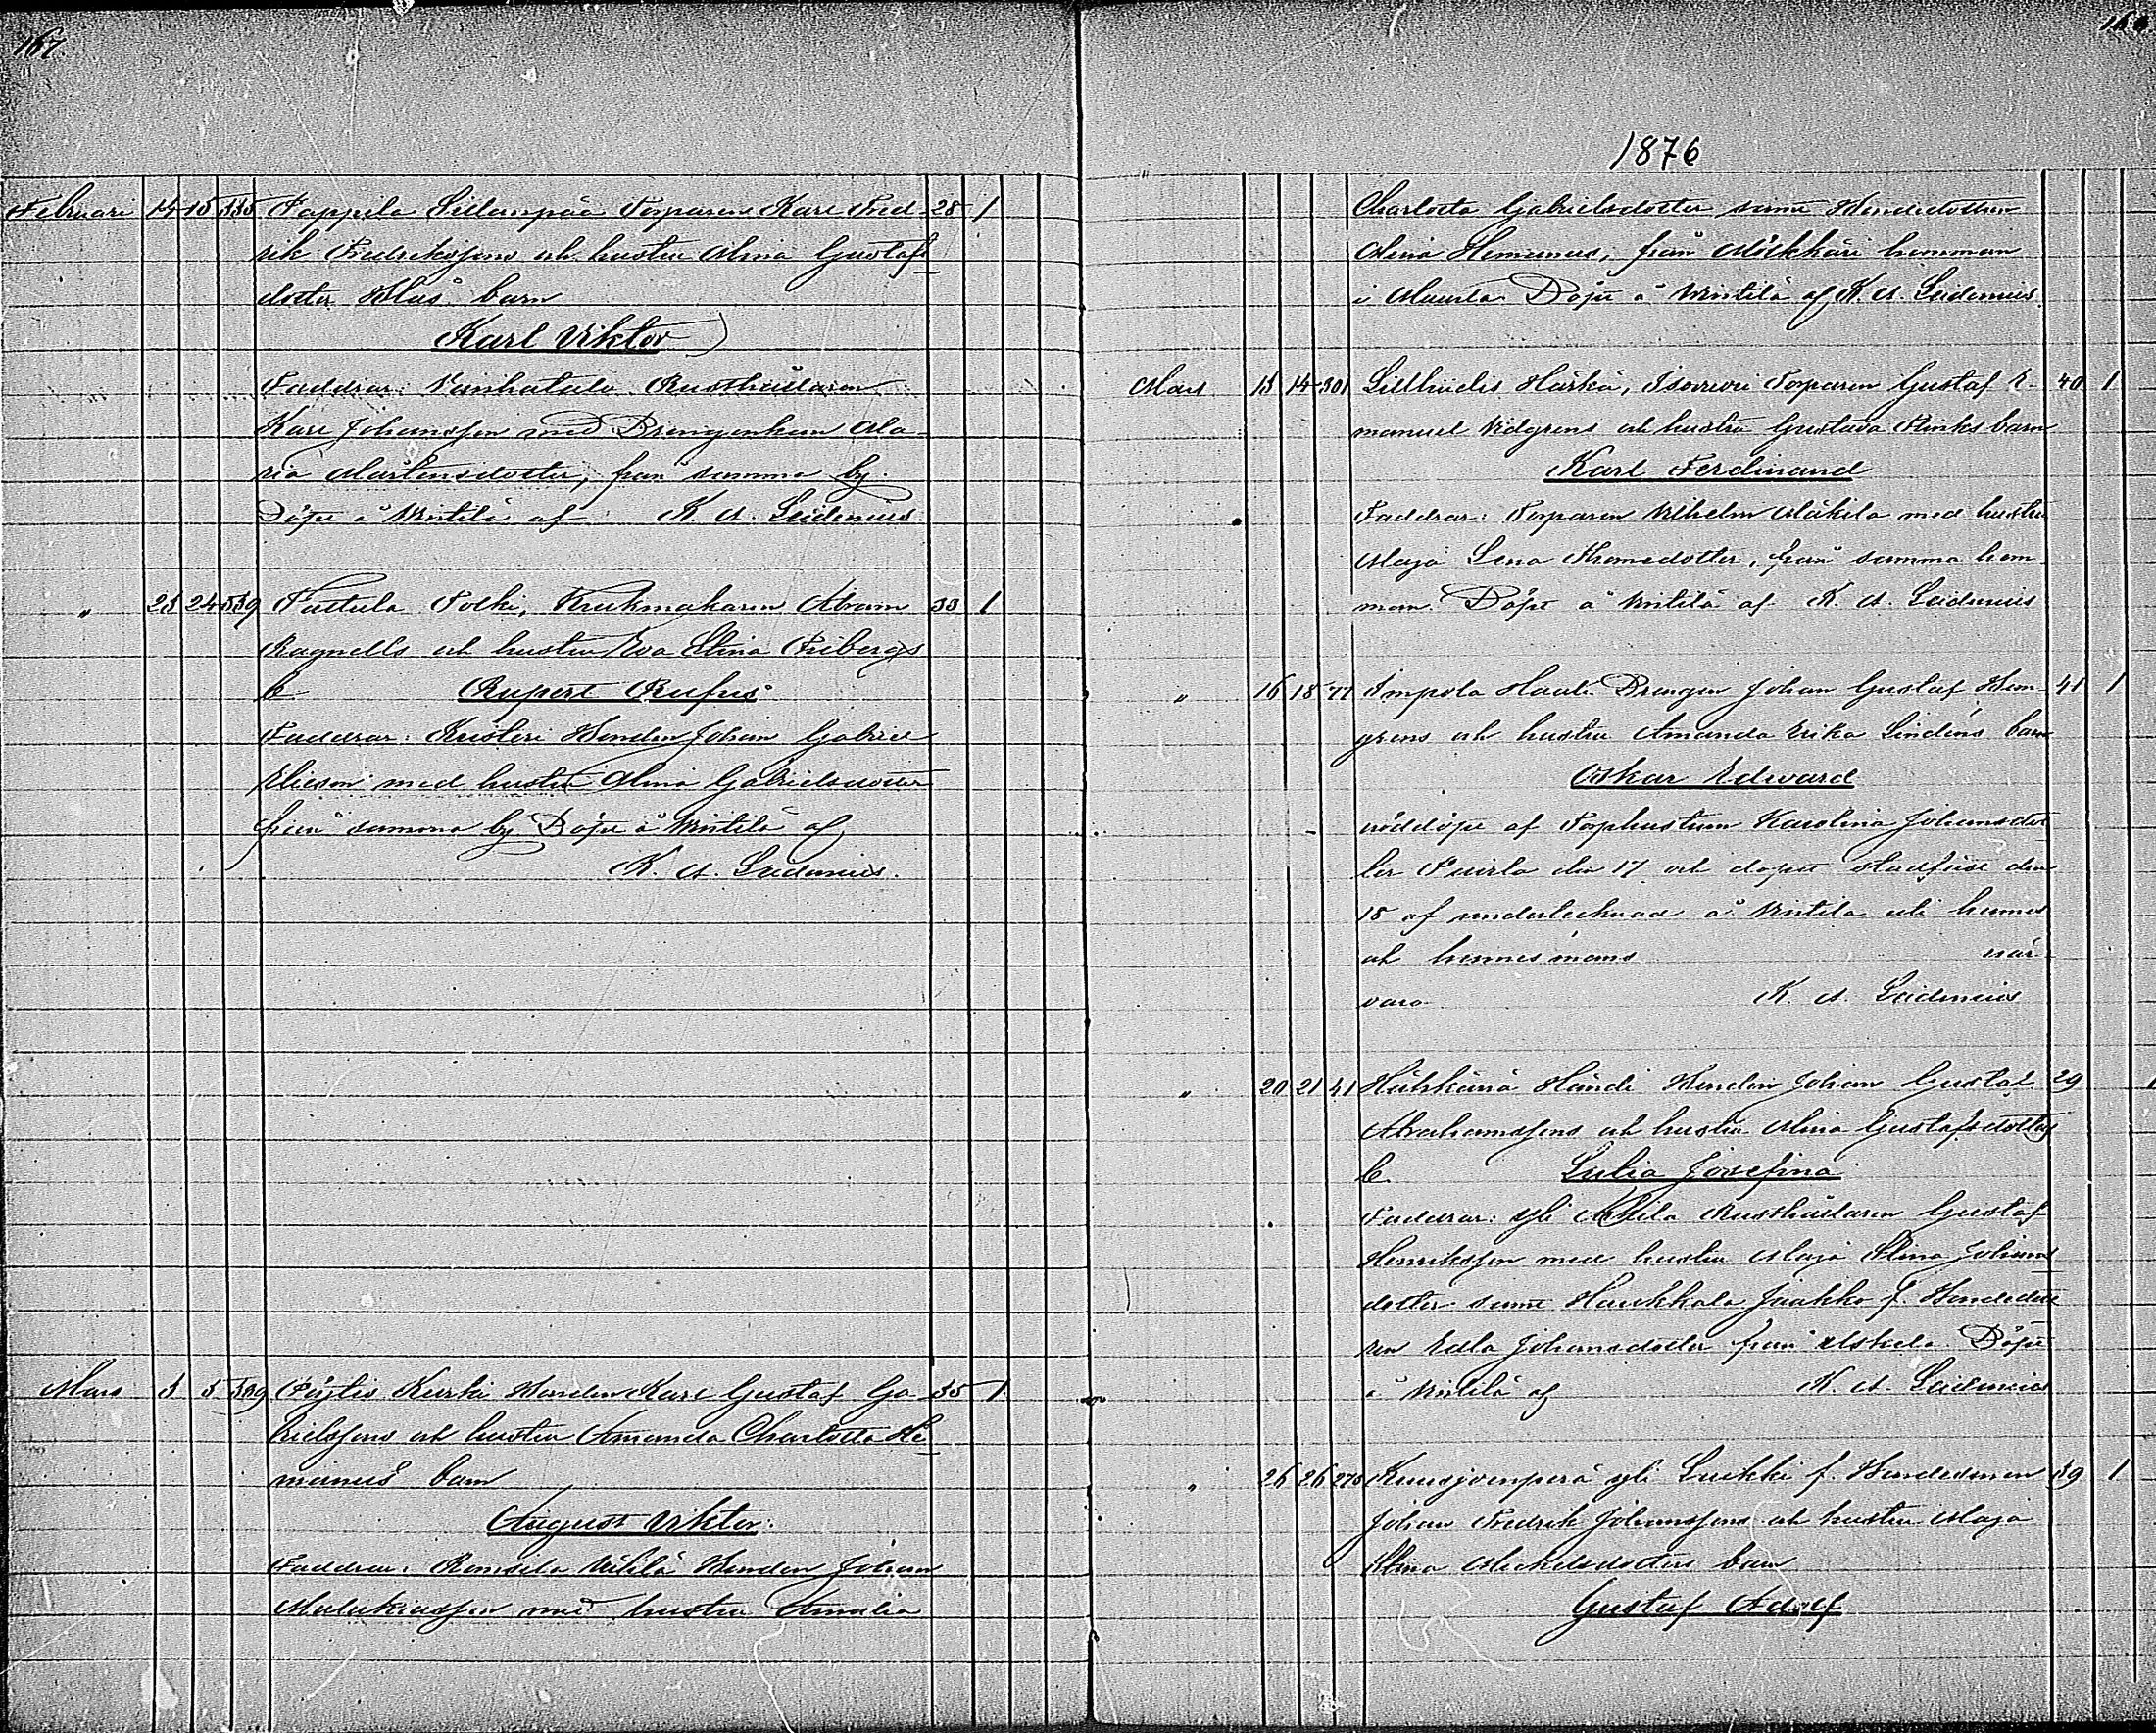 167.
Februari 14 15 335 Pappila Sillanpää Torparen Karl Fred- 28 1
rik Fredrikssons och hustru Mina Gustafs
dotter Blås barn
Karl Viktor
Faddrar: Vanhatalo Rusthållaren
Karl Johansson med Drengenkan Ma-
ria Mårtensdotter, från samma by
Döpt å Mntilä af K. A. Leidenius.
" 23 24 539 Tattula Polki, Krukmakaren Abram 33 1
Ragnells och hustru Eva Stina Fribergs
b. Rupert Rufus
Faddrar: Kristeri Bonden Johan Gabriel
Elieson med hustru Mina Gabrielsdotter
från samma by Döpt å Mntilä af
K. A. Leidenius.
Mars 3 5 399 Pöytiö Kurki Bonden Karl Gustaf Ga- 35 1
brielssons och hustru Amanda Charlotta He-
manus barn
August Viktor.
Faddrar: Bonden Johan
med hustru Amalia
1876
Charlotta Gabrielsdotter samt Bondedottren
Mina Hemanus, från hemman
i Döpt å Mntilä af K. A. Leidenius
Mars 13 14 301 Härkä, Torparen Gustaf E- 40 1
manuel Widgrens och hustru Gustava Flinks barn
Karl Ferdinand
Faddrar: Torparen Wilhelm Mäkilä med hustru
Maja Lena Thomedotter, från samma hem
man. Döpt å Mntilä af K. A. Leidenius
" 16 18 77 Impola Drengen Johan Gustaf 41 1
grens och hustru Amanda Erika Lindéns barn
Oskar Edward
nöddöpt af Torphustrun Karolina Johansdot
ter den 17 och dopet stadfäst den
18 af undertecknad å Mntilä uti hennes
och hennes mans när-
varo K. A. Leidenius
" 20 21 41 Händi Bonden Johan Gustaf 29 1
Abrahamssons och hustru Mina Gustafsdotters
b. Lulia Josefina
Faddrar: yli Rusthållaren Gustaf
Henriksson med hustru Maja Stina Johans
dotter samt Haukkala Jaakko f. Bondedott
ren Edla Johansdotter från Döpt
å Mntilä af K. A. Leidenius
" 26 26 275 Kuusjoenperä yli f. Bondesonen 39 1
Johan Fredrik Johanssons och hustru Maja
Stina Mickelsdotters barn
Gustaf Adolf